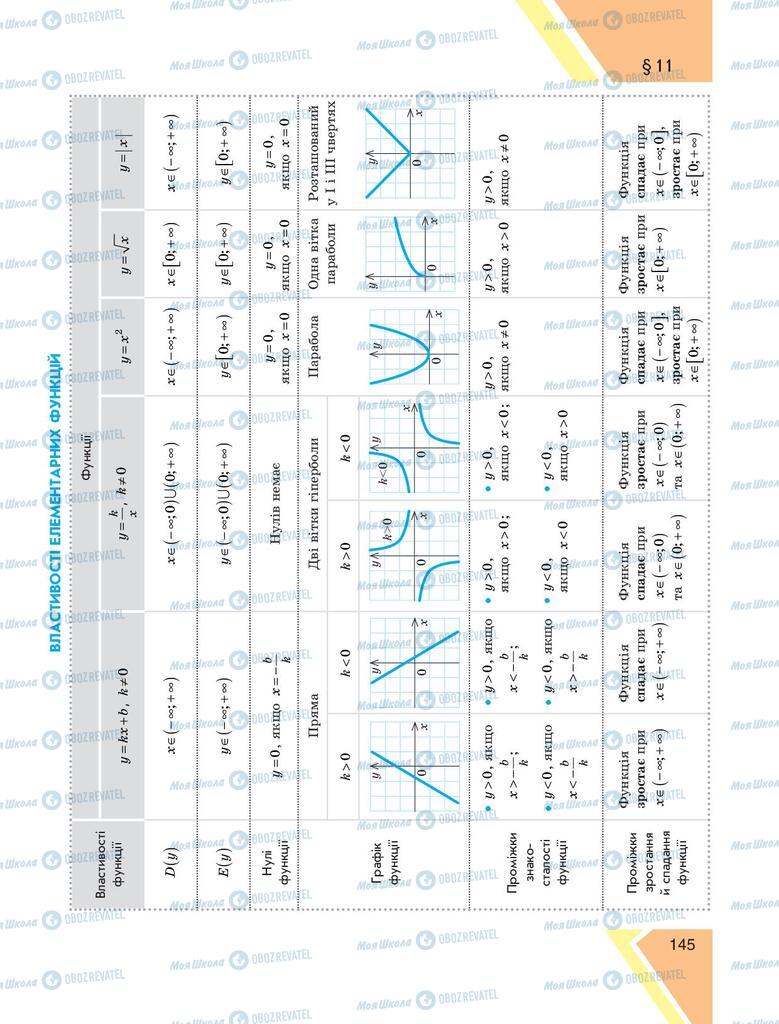 § 11
ВЛАСТИВОСТІ ЕЛЕМЕНТАРНИХ ФУНКЦІЙ
Властивості
функції
Функції
y=kx+b, k≠0
y=k/x, k≠0
y=x²
y=√x
y=|x|
D(y)
x∈(−∞;+∞)
x∈(−∞;0)∪(0;+∞)
x∈(−∞;+∞)
x∈[0;+∞)
x∈(−∞;+∞)
E(y)
y∈(−∞;+∞)
y∈(−∞;0)∪(0;+∞)
y∈[0;+∞)
y∈[0;+∞)
y∈[0;+∞)
Нулі
функції
y=0, якщо x=−b/k
Нулів немає
y=0,
якщо x=0
y=0,
якщо x=0
y=0,
якщо x=0
Графік
функції
Пряма
Дві вітки гіперболи
Парабола
Одна вітка
параболи
Розташований
у I і III чвертях
k>0
k<0
k>0
k<0
y
0
x
y
0
x
y
k>0
0
x
y
k<0
0
x
y
0
x
y
0
x
y
0
x
Проміжки
знако-
сталості
функції
• y>0, якщо
x>−b/k;
• y<0, якщо
x<−b/k
• y>0, якщо
x<−b/k;
• y<0, якщо
x>−b/k
• y>0,
якщо x>0;
• y<0,
якщо x<0
• y>0,
якщо x<0;
• y<0,
якщо x>0
y>0,
якщо x≠0
y>0,
якщо x>0
y>0,
якщо x≠0
Проміжки
зростання
й спадання
функції
Функція
зростає при
x∈(−∞;+∞)
Функція
спадає при
x∈(−∞;+∞)
Функція
спадає при
x∈(−∞;0)
та x∈(0;+∞)
Функція
зростає при
x∈(−∞;0)
та x∈(0;+∞)
Функція
спадає при
x∈(−∞;0],
зростає при
x∈[0;+∞)
Функція
зростає при
x∈[0;+∞)
Функція
спадає при
x∈(−∞;0],
зростає при
x∈[0;+∞)
145
МояШкола OBOZREVATEL